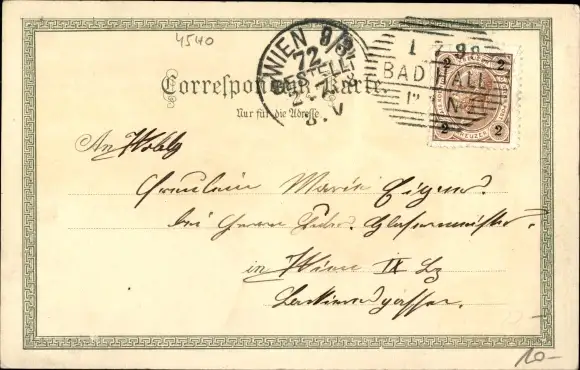 4540
WIEN 9/3
72
BESTELLT
2 7
1 7 98
BAD HALL
12 N
2 2
KREUZER
2 2
Correspondenz-Karte.
Nur für die Adresse.
An Wohlg
Fräulein Marie
bei Herrn Glasermeister.
in Wien IX Bz
10-